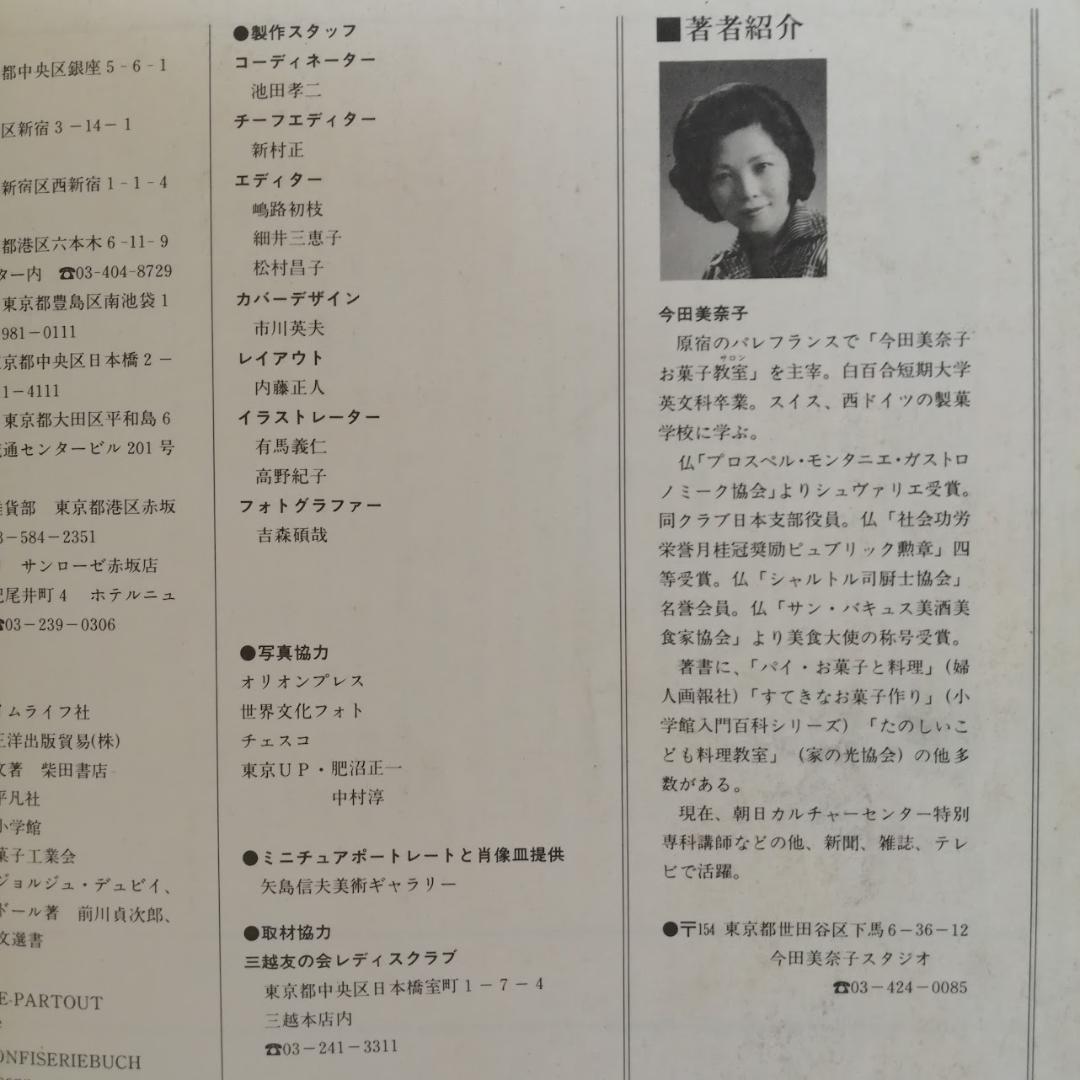 都中央区銀座5-6-1
区新宿3-14-1
新宿区西新宿1-1-4
都港区六本木6-11-9
ター内 ☎03-404-8729
東京都豊島区南池袋1
981-0111
京都中央区日本橋2-
1-4111
東京都大田区平和島6
通センタービル201号
貨部 東京都港区赤坂
3-584-2351
サンローゼ赤坂店
尾井町4 ホテルニュ
☎03-239-0306
イムライフ社
洋出版貿易(株)
文著 柴田書店
平凡社
小学館
菓子工業会
ジョルジュ・デュビイ、
ドール著 前川貞次郎、
文選書
E-PARTOUT
ONFISERIEBUCH
●製作スタッフ
コーディネーター
池田孝二
チーフエディター
新村正
エディター
嶋路初枝
細井三恵子
松村昌子
カバーデザイン
市川英夫
レイアウト
内藤正人
イラストレーター
有馬義仁
高野紀子
フォトグラファー
吉森碩哉
●写真協力
オリオンプレス
世界文化フォト
チェスコ
東京UP・肥沼正一
中村淳
●ミニチュアポートレートと肖像皿提供
矢島信夫美術ギャラリー
●取材協力
三越友の会レディスクラブ
東京都中央区日本橋室町1-7-4
三越本店内
☎03-241-3311
■著者紹介
今田美奈子
原宿のパレフランスで「今田美奈子
お菓子教室」を主宰。白百合短期大学
サロン
英文科卒業。スイス、西ドイツの製菓
学校に学ぶ。
仏「プロスペル・モンタニエ・ガストロ
ノミーク協会」よりシュヴァリエ受賞。
同クラブ日本支部役員。仏「社会功労
栄誉月桂冠奨励ピュブリック勲章」四
等受賞。仏「シャルトル司厨士協会」
名誉会員。仏「サン・バキュス美酒美
食家協会」より美食大使の称号受賞。
著書に、「パイ・お菓子と料理」(婦
人画報社)「すてきなお菓子作り」(小
学館入門百科シリーズ)「たのしいこ
ども料理教室」(家の光協会)の他多
数がある。
現在、朝日カルチャーセンター特別
専科講師などの他、新聞、雑誌、テレ
ビで活躍。
●〒154 東京都世田谷区下馬6-36-12
今田美奈子スタジオ
☎03-424-0085